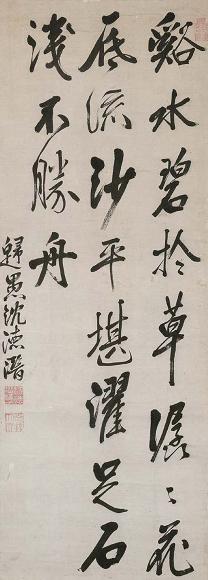 谿水碧於草潺〻花
底流沙平堪濯足石
淺不勝舟
歸愚沈德潛